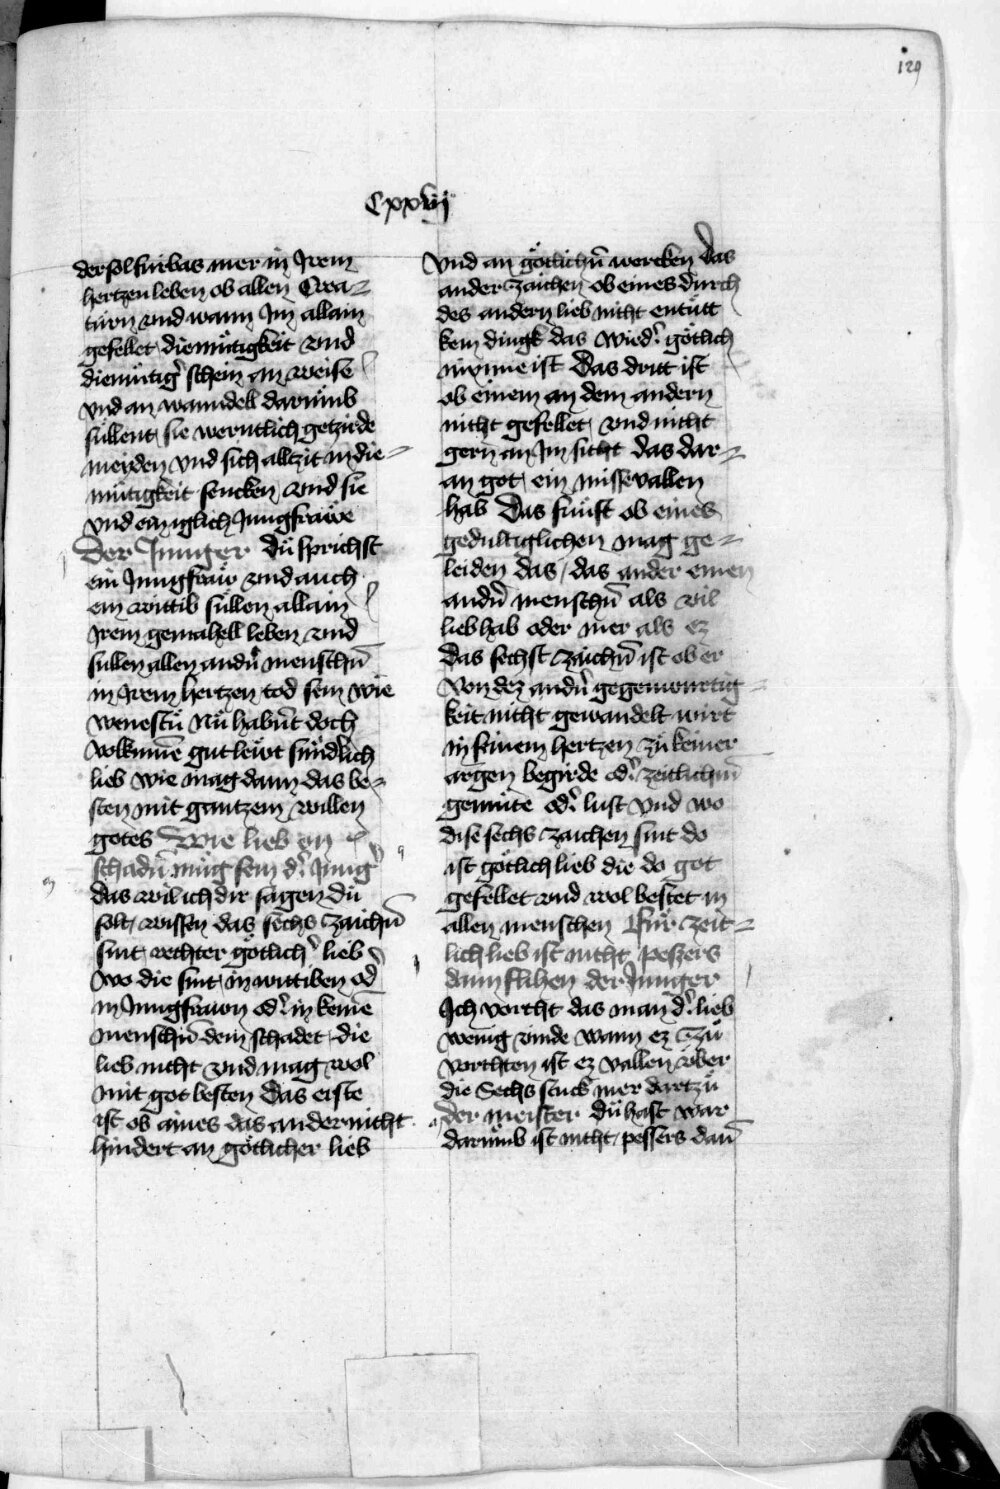 129
Cxxvij
der sol furbas mer in Jrem
hertzen leben ob allen Crea-
turn vnd wann Jm allain
gefellet diemu̇tigkeit vnd
diemu̇tig̉ schein an weise
vnd an wanndell daru̇mb
su̇llent sie werntlich getzirde
meyden vnd sich alltzit in die-
mu̇tigkeit sencken vnd sie
vnd ein iglich Jungfrawe
Der Junger du̇ sprichst
ein Jungfraw vnd auch
ein wittib su̇llen allain
Jrem gemahell leben vnd
sullen allen andn̉ menschn̄
in Jrem hertzen tod sein wie
wenestu̇ Nu̇ habn̄t doch
volkumē gut lewt su̇ndrlich
lieb wie mag dann das be-
sten mit gantzem willen
gotes Wie lieb on
schadn̄ mu̇g sein d̉ Jung̉
das wil ich dir sagen du
solt wissen das sechs zaichn̄
sint rechter go̊tlich̉ lieb
wo die sint in wittiben od̉
in Jungfrawn od̉ in keinē
menschn̄ dem schadet die
lieb nicht vnd mag wol
mit got besten Das erste
ist ob aines das ander nicht
hindert an go̊tlicher lieb
vnd an go̊tlichn̄ wercken Das
ander zaichen ob eines durch
des andern lieb nicht entu̇tt
kein dingk das wied̉ go̊tlich
mynne ist Das dritt ist
ob einem an dem andern
nicht gefellet vnd nicht
gern an Jm sicht das dar-
an got ein missevallen
hab Das fu̇nft ob eines
gedultiglichen mag ge-
leiden das das ander einen
andn̉ menschn̄ als vil
lieb hab oder mer als ez
Das sechst zaichn̄ ist ob er
von dez andn̉ gegenwurtig-
keit nicht gewandelt wirt
in seinem hertzen zu̇ keiner
argen begirde od̉ zeitlichm̄
gemu̇te od̉ lust vnd wo
dise sechs zaichen sint do
ist go̊tlich lieb die do got
gefellet vnd wol bestet in
allen menschen Fu̇r zeit-
lich lieb ist nicht peszers
dann flihen der Junger
Jch vorcht das man d̉ lieb
wenig vinde wann ez zu̇
vorchten ist ez vallen vber
die Sechs stuck mer dartzu̇
der meister du hast war
daru̇mb ist nicht pessers dan̄